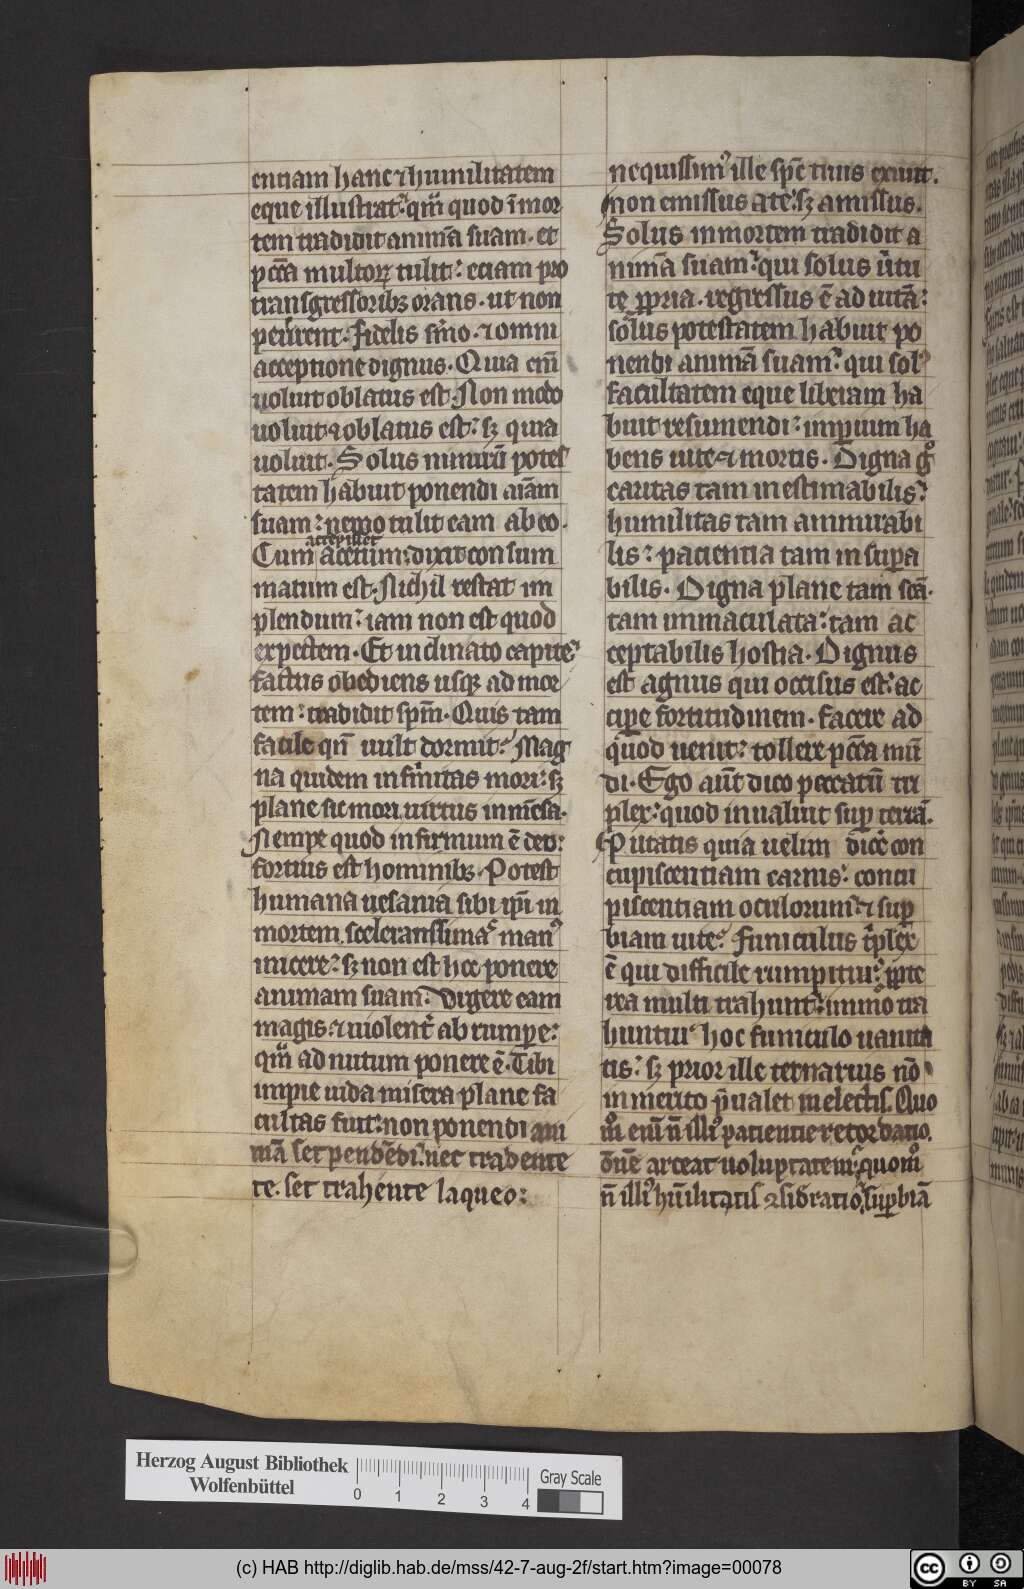 entiam hanc ⁊ humilitatem
eque illustrat. qm̅ quod i̅ mor
tem tradidit anima̅ suam. et
pcc̅a multoꝝ tulit: eciam pro
transgressoribꝫ orans. ut non
perirent. fidelis sermo. ⁊ omni
acceptione dignus. Quia eni̅
uoluit oblatus est. Non modo
uoluit ⁊ oblatus est: sꝫ quia
uoluit. Solus nimiru̅ potes
tatem habuit ponendi ai̅am
suam: nemo tulit eam ab eo.
accepisset
Cum acetum: dixit consum
matum est. Nichil restat im
plendum: iam non est quod
expectem. Et inclinato capite:
factus obediens usqꝫ ad mor
tem: tradidit spm̅. Quis tam
facile qn̅ uult dormit: Mag
na quidem infirmitas mori: sꝫ
plane sic mori uirtus inme̅sa.
Nempe quod infirmum e̅ deo:
fortius est hominibꝫ. Potest
humana uesania sibi ipi̅ in
mortem sceleratissimas manꝰ
inicere: sꝫ non est hoc ponere
animam suam: Urgere eam
magis. ⁊ uiolenter abrumpe̅:
qm̅ ad nutum ponere e̅. Tibi
impie iuda misera plane fa
cultas fuit: non ponendi ani
ma̅ set pende̅di: nec tradente
te. set trahente laqueo:
nequissimꝰ ille spc̅ tuus exiuit.
non emissus a te: sꝫ amissus.
Solus in mortem tradidit a
nima̅ suam: qui solus uirtu
te ꝓpria. regressus e̅ ad uita̅:
solus potestatem habuit po
nendi anima̅ suam: qui solꝰ
facultatem eque liberam ha
buit resumendi: imperium ha
bens uite ⁊ mortis. Digna gͦ
caritas tam inestimabilis:
humilitas tam ammirabi
lis: patientia tam insupa̅
bilis. Digna plane tam sc̅a.
tam immaculata: tam ac
ceptabilis hostia. Dignus
est agnus qui occisus est: ac
cipe̅ fortitudinem. facere ad
quod uenit: tollere pcc̅a mu̅
di. Ego aut̅ dico peccatu̅ tri
plex: quod inualuit sup terra̅.
Putatis quia uelim dice̅ con
cupiscentiam carnis: concu
piscentiam oculorum ⁊ sup
biam uite: Funiculus triplex
e̅ qui difficile rumpitur: ipte
rea multi trahunt: immo tra
huntur hoc funiculo uanita
tis: sꝫ prior ille ternarius no̅
inmerito preualet in electis. Quo
mͦ eni̅ n̅ illiꝰ patientie recordatio.
om̅e arceat uoluptatem: quomͦ
n̅ illiꝰ hu̅ilitatis ⁊siderațio, supbia̅
Herzog August Bibliothek
Wolfenbüttel
0 1 2 3 4
Gray Scale
(c) HAB http://diglib.hab.de/mss/42-7-aug-2f/start.htm?image=00078
cc BY SA